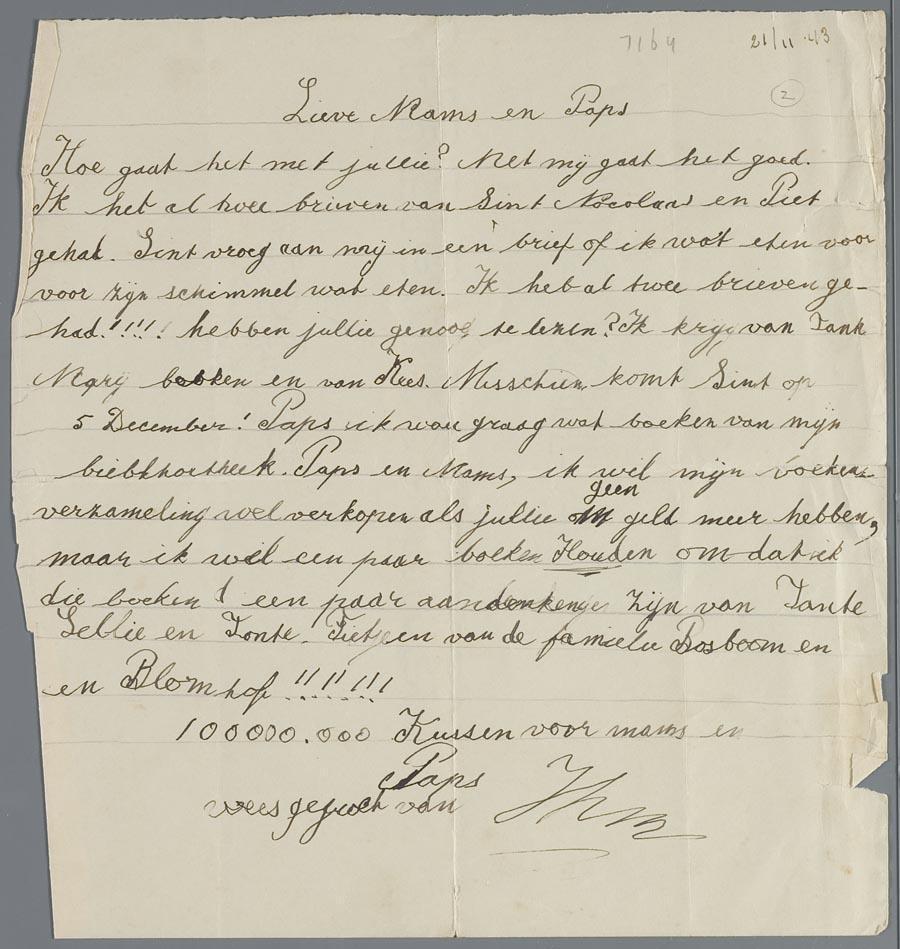 7164 21/11 43
2
Lieve Mams en Paps
Hoe gaat het met jullie? Met mij gaat het goed.
Ik het al twee brieven van Sint Nocolaas en Piet
gehad. Sint vroeg aan mij in een brief of ik wat eten voor
voor zijn schimmel wat eten. Ik heb al twee brieven ge-
had!!!!! hebben jullie genoog te lezen? Ik krijg van Tante
Marij boeken en van Kees. Misschien komt Sint op
5 December! Paps ik wou graag wat boeken van mijn
biebliootheek. Paps en Mams, ik wil mijn boeken-
verzameling wel verkopen als jullie geen geld meer hebben,
maar ik wil een paar boeken Houden om dat ik
die boeken een paar aandenkenge zijn van Tante
Leblie en Tonte Fietje en van de famielie Bosboom en
en Blomhof !!!!!!!
100000.000 Kussen voor mams en
Paps
wees gegroet van